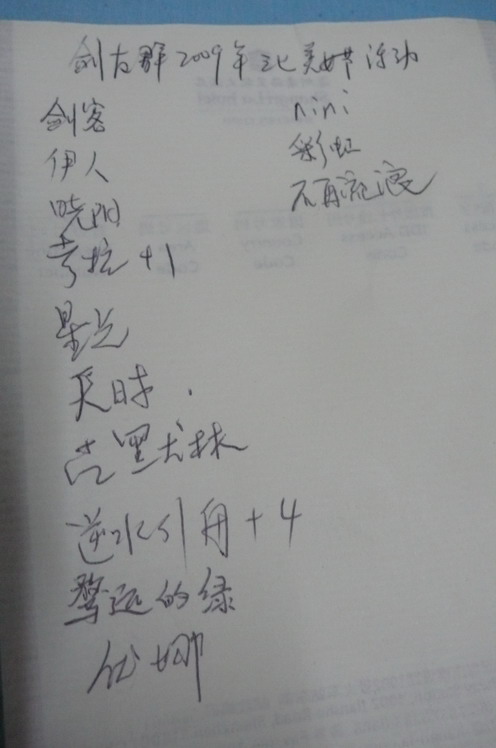 剑友群2009年三八美女节活动
剑客
伊人
晓阳
考拉+1
星光
天时.
古墨尤林
逆水引舟+4
遥远的绿
优娜
nini
彩虹
不再流浪